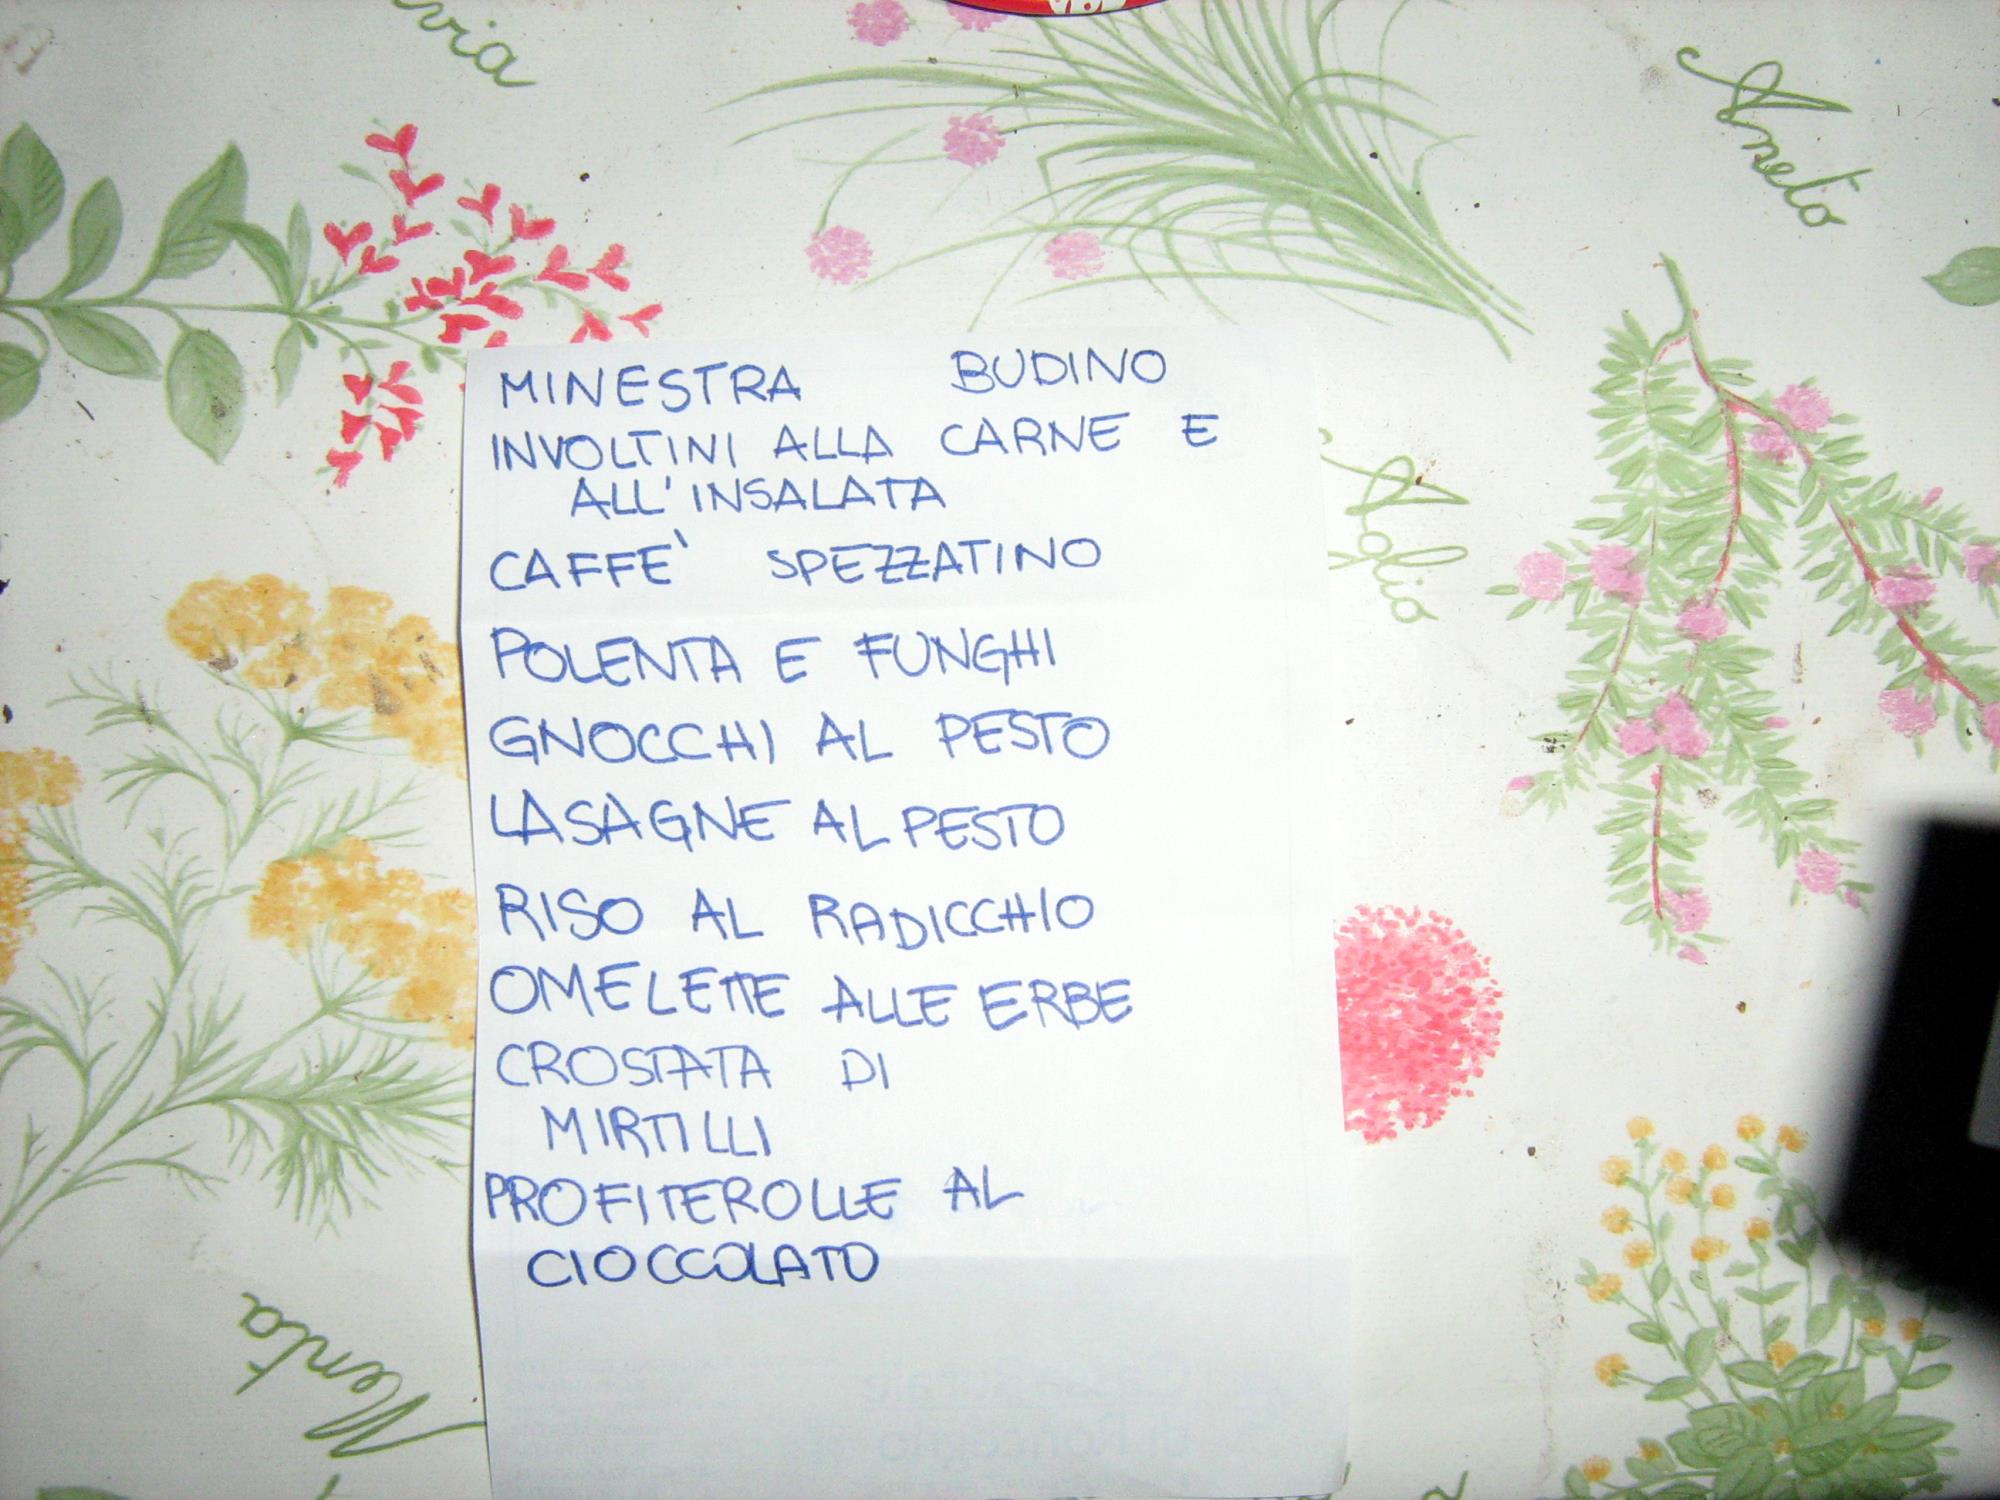 via
Aneto
MINESTRA BUDINO
INVOLTINI ALLA CARNE E
ALL'INSALATA
CAFFE` SPEZZATINO
POLENTA E FUNGHI
GNOCCHI AL PESTO
LASAGNE AL PESTO
RISO AL RADICCHIO
OMELETTE ALLE ERBE
CROSTATA DI
MIRTILLI
PROFITEROLLE AL
CIOCCOLATO
Aglio
Menta